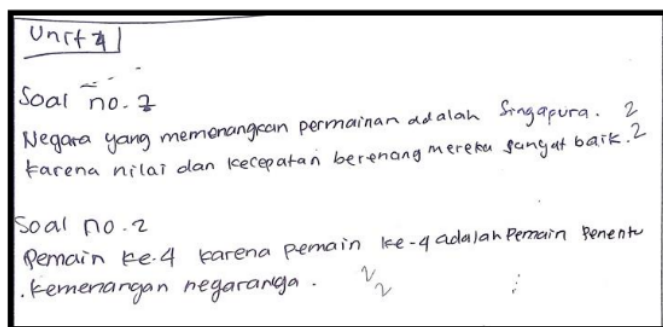 Unit 4
Soal no. 1
Negara yang memenangkan permainan adalah Singapura. 2
karena nilai dan kecepatan berenang mereka sangat baik. 2
Soal no. 2
Pemain ke-4 karena pemain ke-4 adalah Pemain Penentu
kemenangan negaranya. 2
2